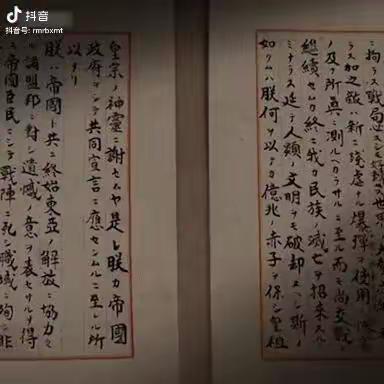 抖音
抖音号: rmrbxmt
ニ拘ラス戰局必スシモ好轉セス世界
ラス加之敵ハ新ニ殘虐ナル爆彈ヲ使用シ
ノ及フ所眞ニ測ルヘカラサルニ至ル而モ尚交戰ヲ
繼續セムカ終ニ我カ民族ノ滅亡ヲ招來スル
ミナラス延テ人類ノ文明ヲモ破却スヘシ斯ノ
如クムハ朕何ヲ以テカ億兆ノ赤子ヲ保シ皇祖
皇宗ノ神靈ニ謝セムヤ是レ朕カ帝國
政府ヲシテ共同宣言ニ應セシムルニ至レル所
以ナリ
朕ハ帝國ト共ニ終始東亞ノ解放ニ協力セ
ル諸盟邦ニ對シ遺憾ノ意ヲ表セサルヲ得
ス帝國臣民ニシテ戰陣ニ死シ職域ニ殉シ非